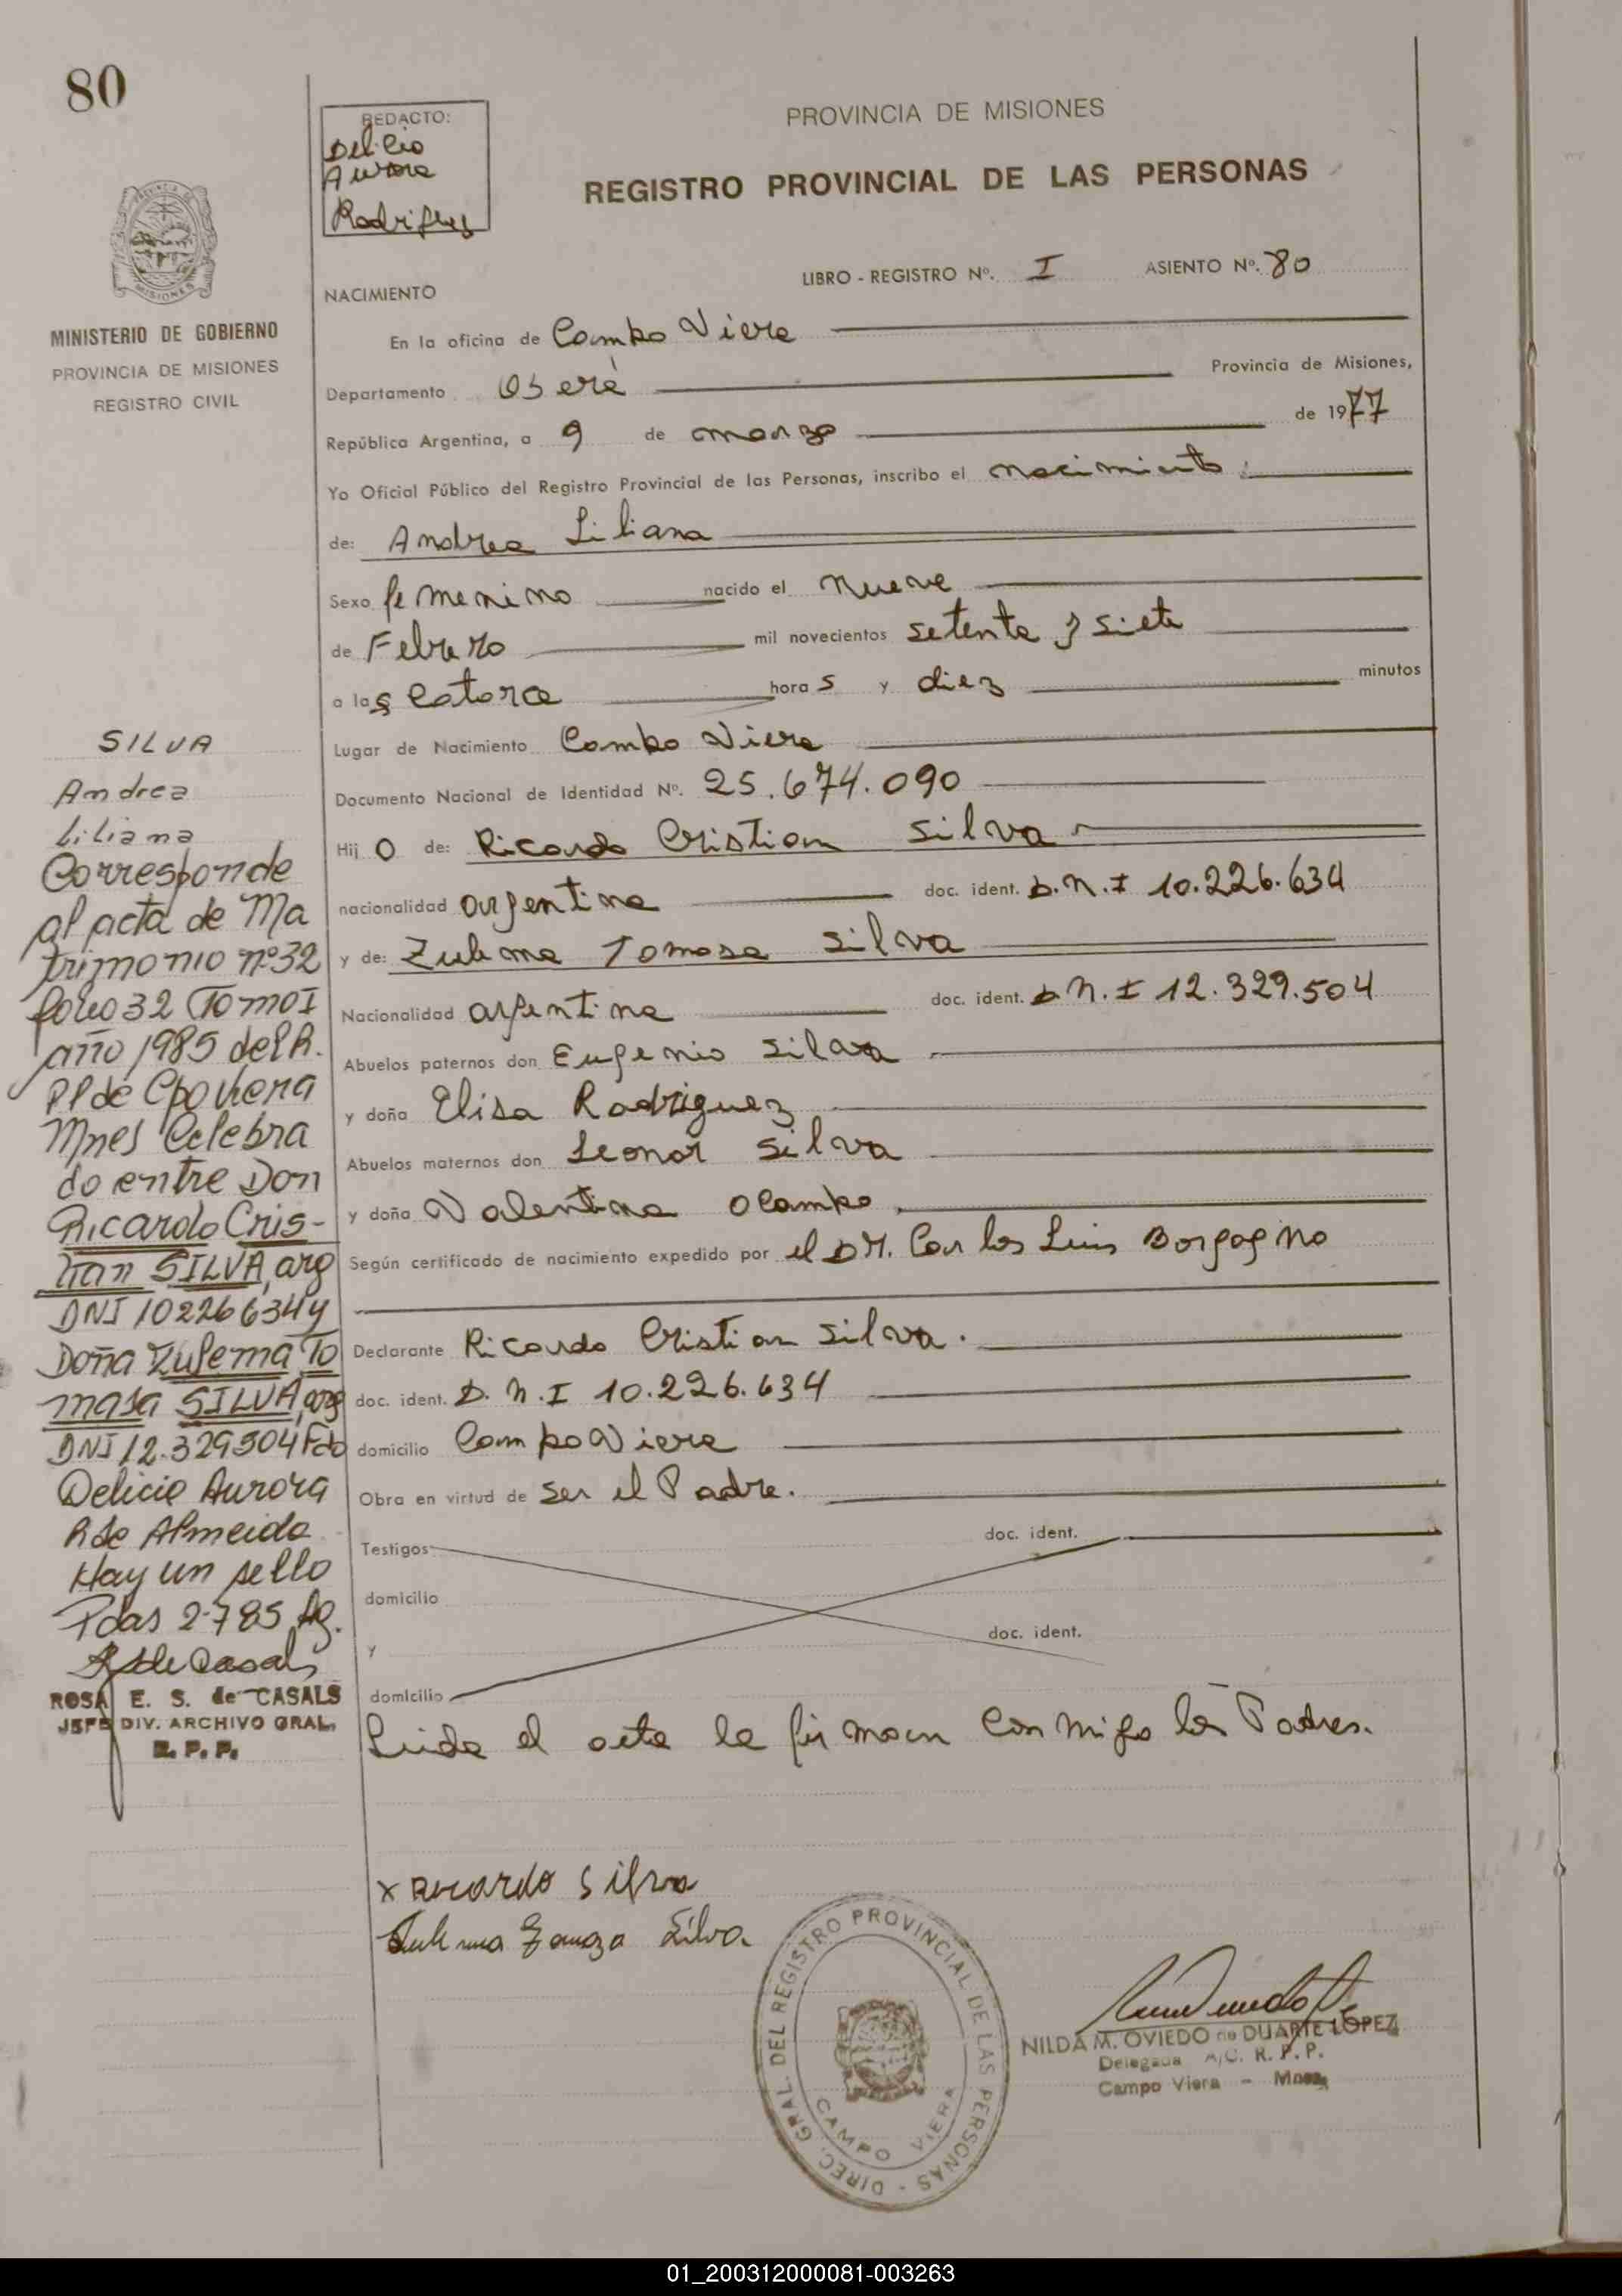 80
REDACTO:
Delicio
Aurora
Rodriguez
PROVINCIA DE MISIONES
REGISTRO PROVINCIAL DE LAS PERSONAS
LIBRO - REGISTRO Nº. I ASIENTO Nº. 80
MISIONES
MINISTERIO DE GOBIERNO
PROVINCIA DE MISIONES
REGISTRO CIVIL
NACIMIENTO
En la oficina de Campo Viera
Departamento Oberá Provincia de Misiones,
República Argentina, a 9 de marzo de 1977
Yo Oficial Público del Registro Provincial de las Personas, inscribo el nacimiento
de: Andrea Liliana
Sexo femenino nacido el nueve
de Febrero mil novecientos setenta y siete
a las catorce horas y diez minutos
Lugar de Nacimiento Campo Viera
Documento Nacional de Identidad Nº. 25.674.090
Hijo de: Ricardo Cristian Silva
nacionalidad argentina doc. ident. D.N.I 10.226.634
y de: Zulema Tomasa Silva
Nacionalidad argentina doc. ident. D.N.I 12.329.504
Abuelos paternos don Eugenio Silva
y doña Elisa Rodriguez
Abuelos maternos don Leonor Silva
y doña Valentina Ocampo
Según certificado de nacimiento expedido por el DR. Carlos Luis Borgogno
Declarante Ricardo Cristian Silva.
doc. ident. D.N.I 10.226.634
domicilio Campo Viera
Obra en virtud de ser el Padre.
Testigos doc. ident.
domicilio
y doc. ident.
domicilio
Leida el acta la firman conmigo los Padres.
SILVA
Andrea
Liliana
Corresponde
al acta de Ma
trimonio nº 32
folio 32 Tomo I
año 1985 del R.
PP de Cpo Viera
Mnes Celebra
do entre Don
Ricardo Cris-
tian SILVA, arg
DNI 10226634 y
Doña Zulema To
masa SILVA, arg
DNI 12.329504 Fdo
Delicio Aurora
R de Almeida
Hay un sello
Pdas 2-785 Ag.
R S de Casals
ROSA E. S. de CASALS
JEFE DIV. ARCHIVO GRAL.
R. P. P.
x Ricardo Silva
Zulema Tomaza Silva.
DIREC. GRAL. DEL REGISTRO PROVINCIAL DE LAS PERSONAS -
CAMPO VIERA
NILDA M. OVIEDO de DUARTE LOPEZ
Delegada A/C. R. P. P.
Campo Viera - Mnes.
01_200312000081-003263